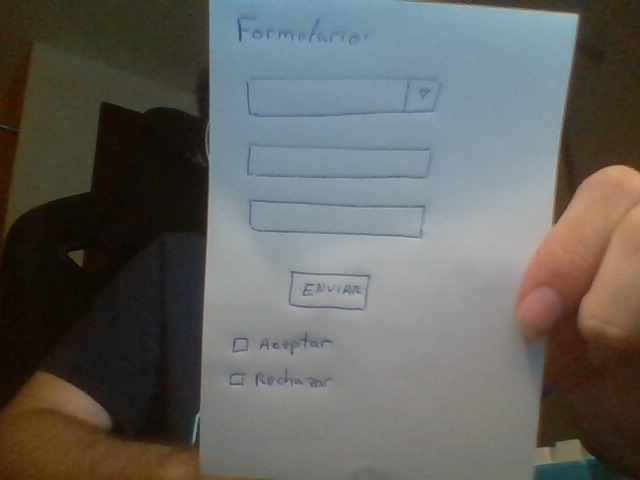 Formulario:
ENVIAR
Aceptar
Rechazar